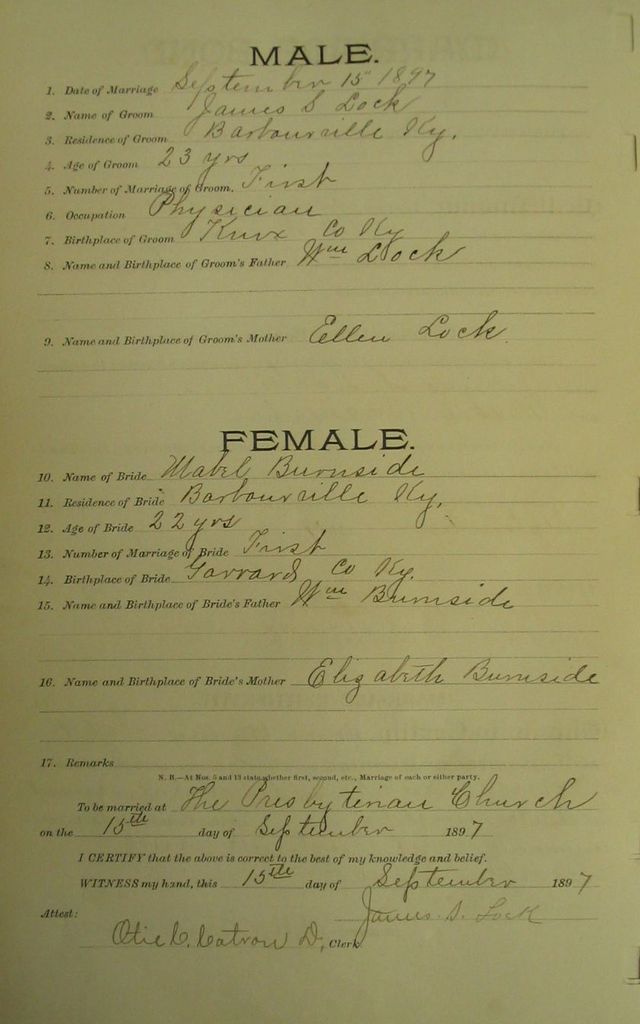 MALE.
1. Date of Marriage September 15" 1897
2. Name of Groom James S Lock
3. Residence of Groom Barbourville Ky.
4. Age of Groom 23 yrs
5. Number of Marriage of Groom. First
6. Occupation Physician
7. Birthplace of Groom Knox Co Ky
8. Name and Birthplace of Groom's Father Wm Lock
9. Name and Birthplace of Groom's Mother Ellen Lock
FEMALE.
10. Name of Bride Mabel Burnside
11. Residence of Bride Barbourville Ky.
12. Age of Bride 22 yrs
13. Number of Marriage of Bride First
14. Birthplace of Bride Garrard Co Ky.
15. Name and Birthplace of Bride's Father Wm Burnside
16. Name and Birthplace of Bride's Mother Elizabeth Burnside
17. Remarks
N. B.—At Nos. 5 and 13 state whether first, second, etc., Marriage of each or either party.
To be married at The Presbyterian Church
on the 15th day of September 1897
I CERTIFY that the above is correct to the best of my knowledge and belief.
WITNESS my hand, this 15th day of September 1897
James. S. Lock
Attest:
Otie C. Catron D, Clerk